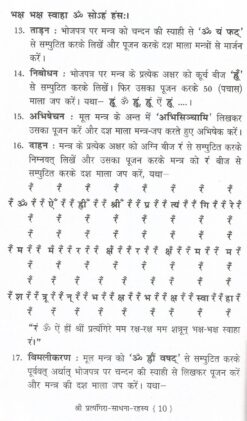 भक्ष भक्ष स्वाहा ॐ सोऽहं हंसः।
13. ताड़न : भोजपत्र पर मन्त्र को चन्दन की स्याही से 'ॐ यं फट्'
से सम्पुटित करके लिखें और पूजन करके दश माला मन्त्रों से मार्जन
करें।
14. निबोधन : भोजपत्र पर मन्त्र के प्रत्येक अक्षर को कूर्च बीज 'हूं'
से सम्पुटित करके लिखें। फिर उसका पूजन करके 50 (पचास)
माला जप करें, यथा— हूं ॐ हूं हूं ऐं हूं ....।
15. अभिषेचन : मूल मन्त्र के अन्त में 'अभिसिञ्चामि' लिखकर
उसका पूजन करें और दश माला मन्त्र-जप करते हुए अभिषेक करें।
16. दाहन : मन्त्र के प्रत्येक अक्षर को अग्नि बीज रं से सम्पुटित करके
निम्नवत् लिखें और उसका पूजन करके मन्त्र को रं बीज से
सम्पुटित करके दश माला जप करें, यथा—
रं रं रं रं रं रं रं रं
रं रं ॐ रं रं ऐं रं रं ह्रीं रं रं श्रीं रं रं प्र रं रं त्यं रं रं गि रं रं रे रं
रं रं रं रं रं रं रं रं
"रं ॐ ऐं ह्रीं श्रीं प्रत्यंगिरे मम रक्ष-रक्ष मम शत्रून् भक्ष-भक्ष स्वाहा
रं।"
17. विमलीकरण : मूल मन्त्र को 'ॐ ह्रौं वषट्' से सम्पुटित करके
पूर्ववत् अर्थात् भोजपत्र पर चन्दन की स्याही से लिखकर पूजन करें
और मन्त्र की दश माला जप करें। यथा—
श्री प्रत्यंगिरा-साधना-रहस्य (10)